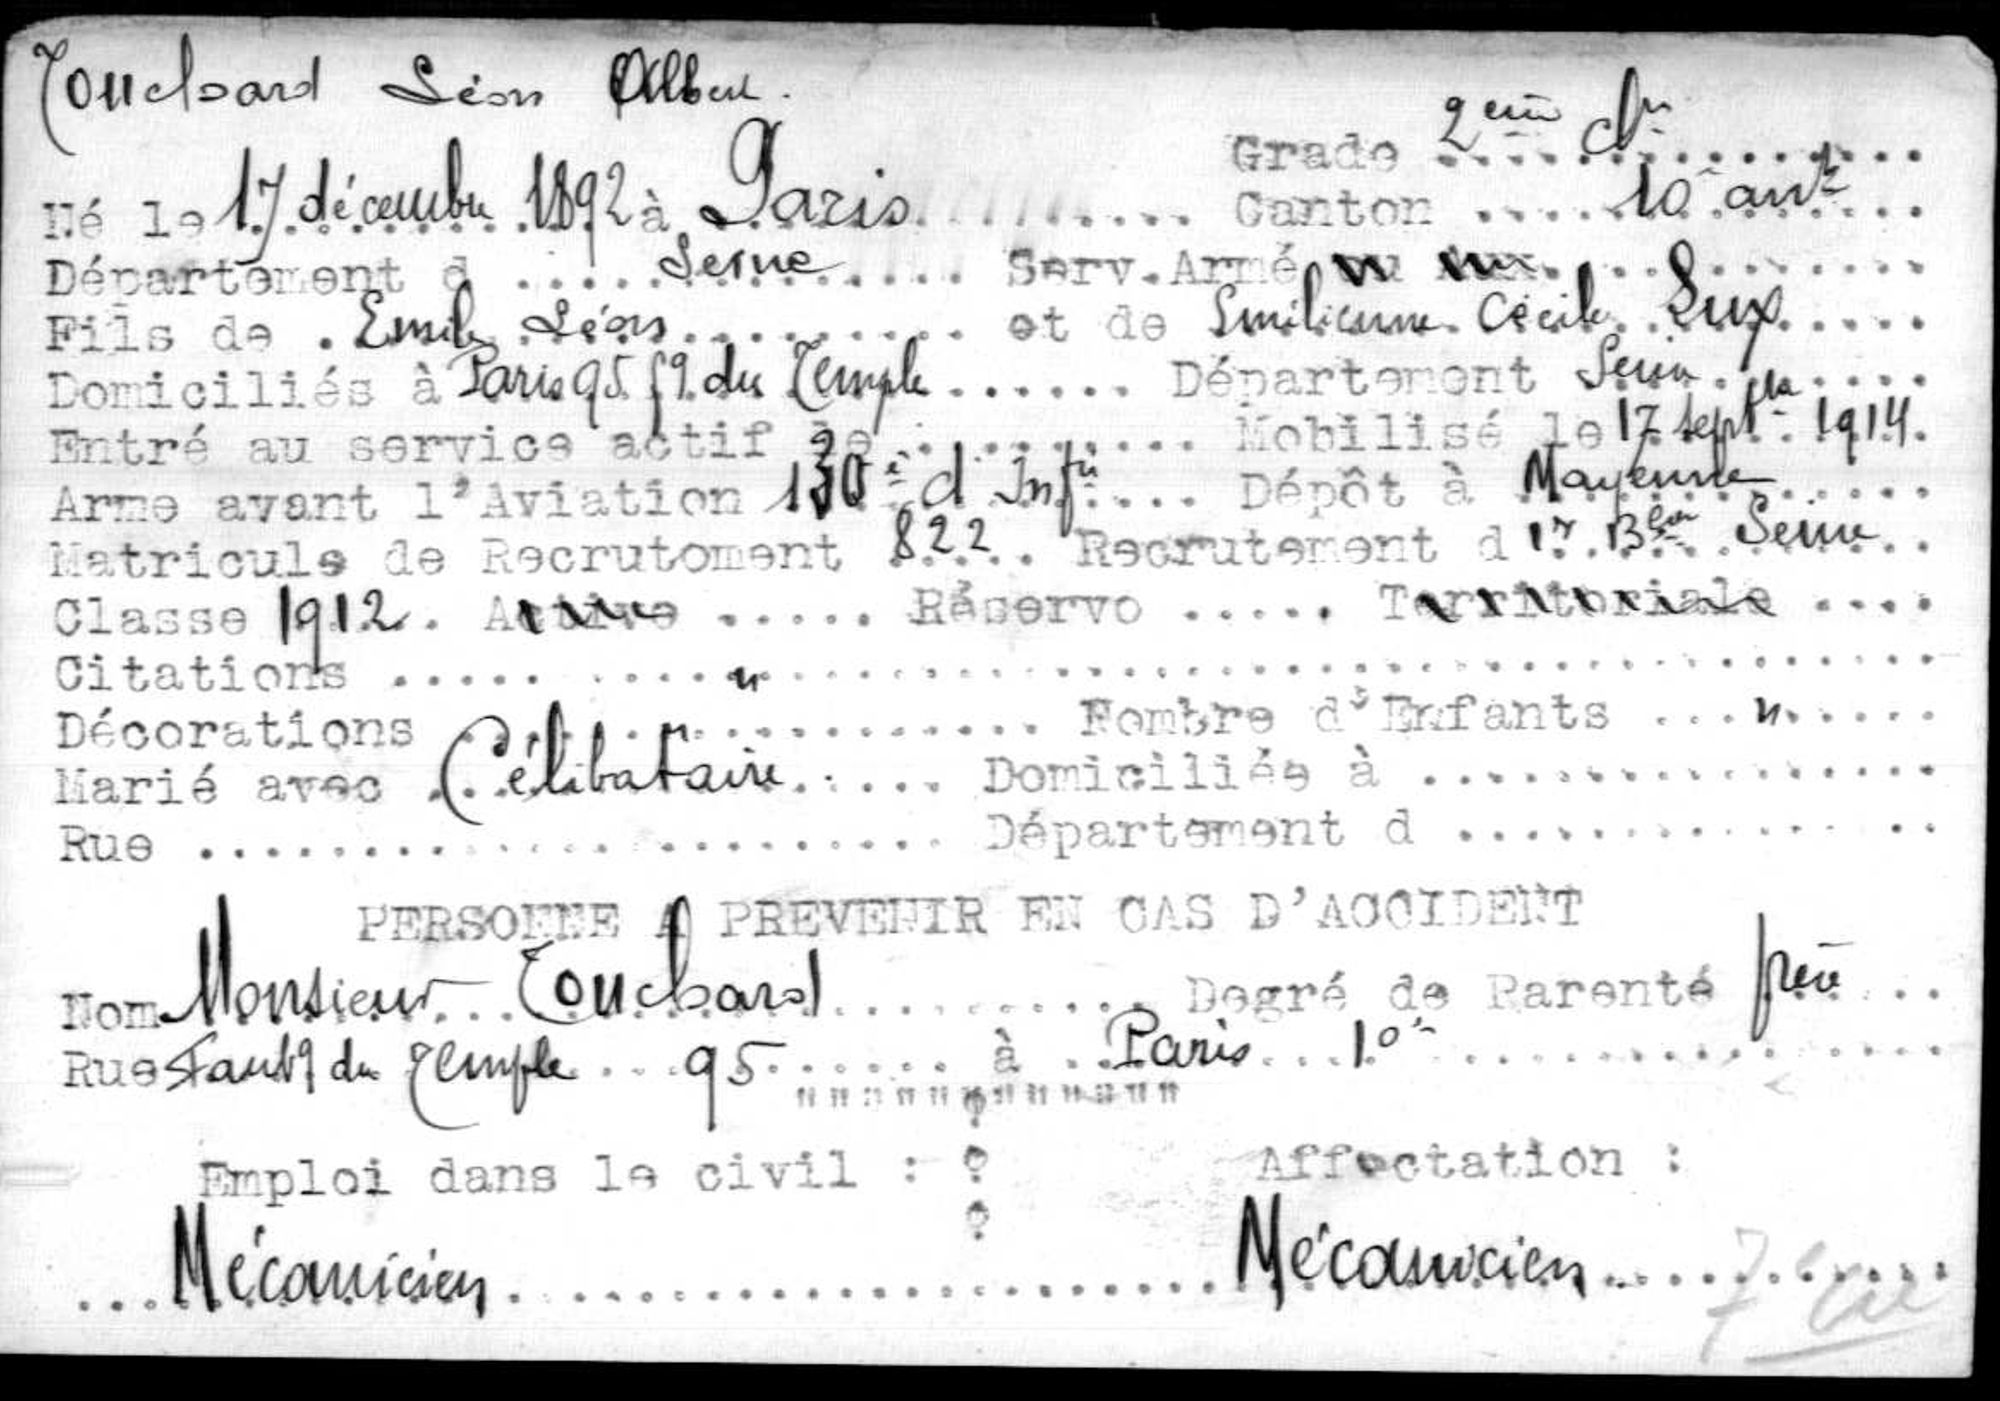 Touchard Léon Albert.
Grade 2ème Cl
Né le 17 décembre 1892 à Paris ..... Canton .... 10e arrt
Département d .... Seine .... Serv. Armé
Fils de . Emile Léon ......... et de Emilienne Cécile Lux
Domiciliés à Paris 95 fg du Temple ...... Département Seine
Entré au service actif le ........... Mobilisé le 17 Septbre 1914.
Arme avant l'Aviation 130e d'Infie ... Dépôt à Mayenne
Matricule de Recrutement 822 .. Recrutement d 1r Beau Seine
Classe 1912. Active ..... Réserve ..... Territoriale ....
Citations ..... " .....
Décorations ..... " ..... Nombre d'Enfants ... " .....
Marié avec Célibataire ..... Domiciliés à .....
Rue ..... Département d .....
PERSONNE A PREVENIR EN CAS D'ACCIDENT
Nom Monsieur Touchard ..... Degré de Parenté père ...
Rue Faubg du Temple ... 95 ...... à .. Paris ... 10e .....
""""""""""""
Emploi dans le civil : Affectation :
... Mécanicien ..... Mécanicien .....